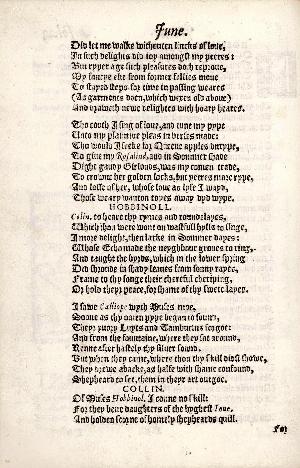 June.
Did let me walke withouten lincks of loue,
In such delights did ioy amongst my peeres:
But ryper age such pleasures doth reproue,
My fancye eke from former follies moue
To stayed steps: for time in passing weares
(As garments doen, which wexen old aboue)
And draweth newe delightes with hoary heares.
Tho couth I sing of loue, and tune my pype
Unto my plaintiue pleas in verses made:
Tho would I seeke for Queene apples vnrype,
To giue my Rosalind, and in Sommer shade
Dight gaudy Girlonds, was my comen trade,
To crowne her golden locks, but yeeres more rype,
And losse of her, whose loue as lyfe I wayd,
Those weary wanton toyes away dyd wype.
HOBBINOLL.
Colin, to heare thy rymes and roundelayes,
Which thou were wont on wastfull hylls to singe,
I more delight, then larke in Sommer dayes:
Whose Echo made the neyghbour groues to ring,
And taught the byrds, which in the lower spring
Did shroude in shady leaues from sunny rayes,
Frame to thy songe their chereful cheriping,
Or hold theyr peace, for shame of thy swete layes.
I sawe Calliope wyth Muses moe,
Soone as thy oaten pype began to sound,
Theyr yuory Luyts and Tamburins forgoe:
And from the fountaine, where they sat around,
Renne after hastely thy siluer sound.
But when they came, where thou thy skill didst showe,
They drewe abacke, as halfe with shame confound,
Shepheard to see, them in theyr art outgoe.
COLLIN.
Of Muses Hobbinol, I conne no skill:
For they bene daughters of the hyghest Ioue,
And holden scorne of homely shepheards quill.
For